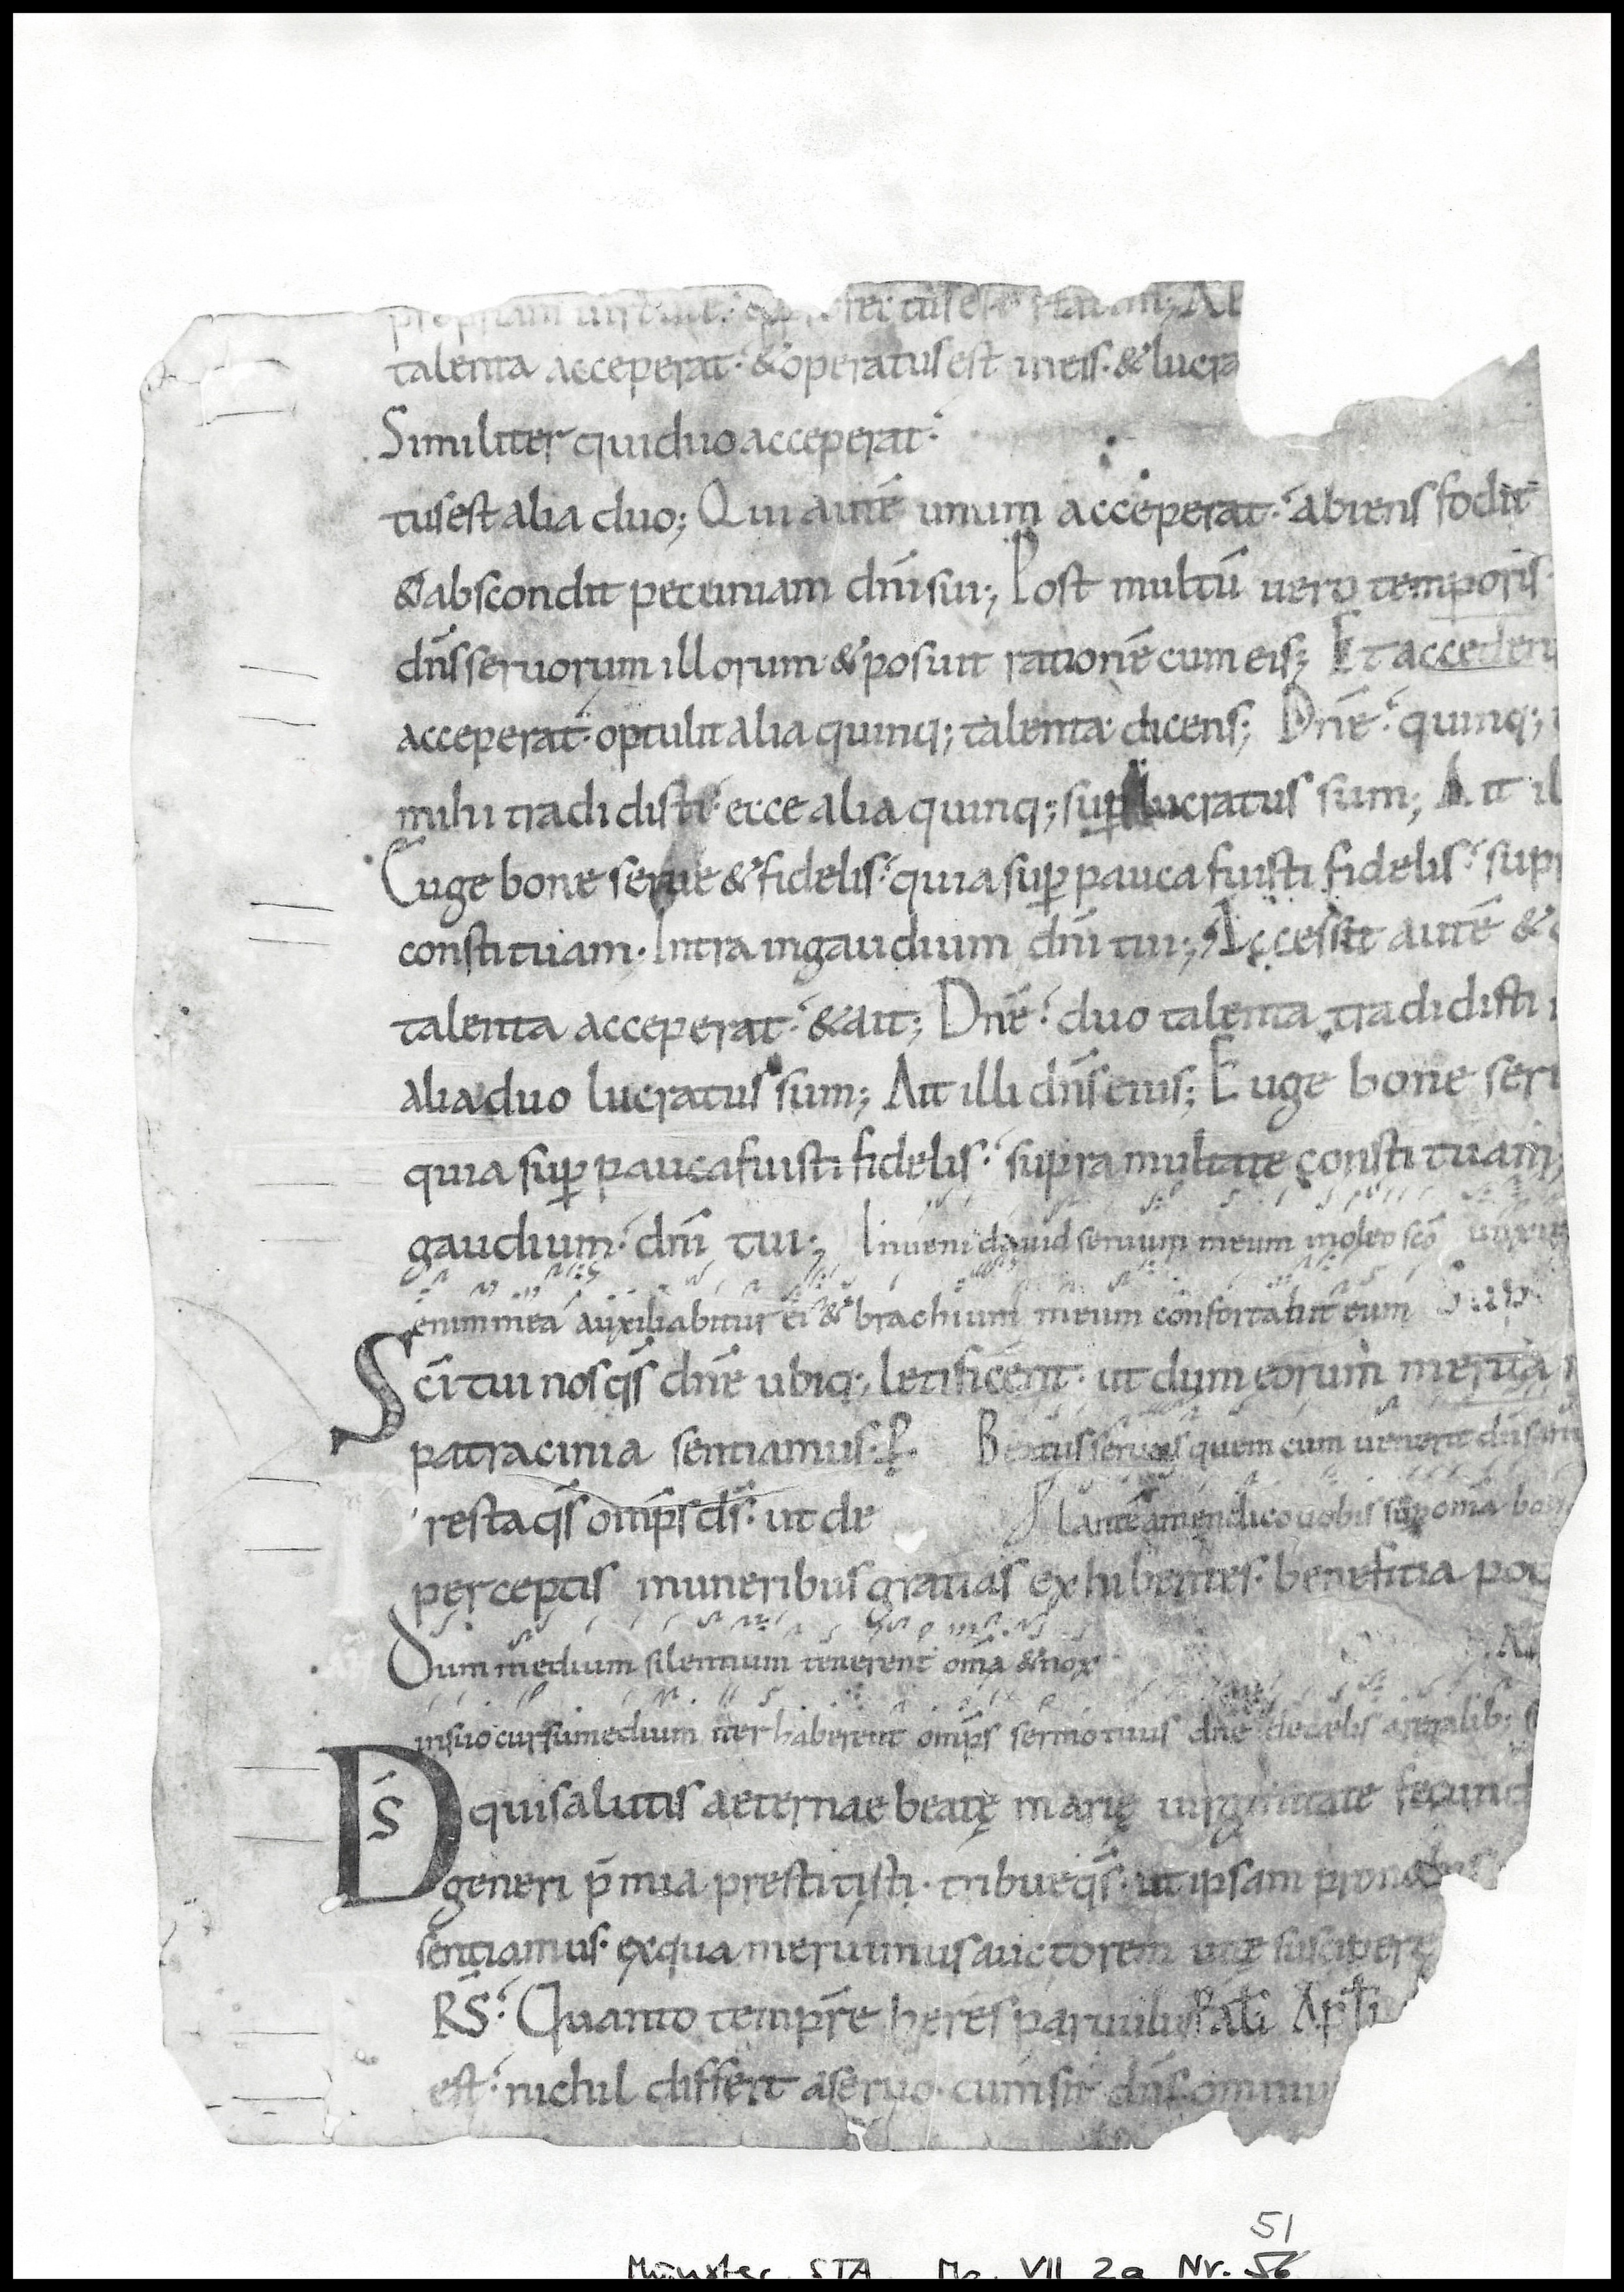 propriam uirtutē. & profectus est statim; Ab
talenta acceperat. & operatus est in eis. & lucra
Similiter qui duo acceperat.
tus est alia duo; Qui autē unum acceperat. abiens fodit
& abscondit pecuniam dn̄i sui; Post multū uero temporis.
dn̄s seruorum illorum & posuit rationē cum eis; Et accedens
acceperat. optulit alia quinq; talenta dicens; Dn̄e. quinq;
mihi tradidisti ecce alia quinq; sup lucratus sum; Ait il
Euge bone serue & fidelis. quia sup pauca fuisti fidelis. supr
constituam. Intra in gaudium dn̄i tui; Accessit autē &
talenta acceperat. & ait; Dn̄e. duo talenta tradidisti
alia duo lucratus sum; Ait illi dn̄s eius; Euge bone seru
quia sup pauca fuisti fidelis. supra multa te constituam;
gaudium. dn̄i tui; Inueni dauid seruum meum in oleo sc̄o unxi
enim mea auxiliabitur ei & brachium meum confortabit eum
Sc̄i tui nos qs̄ dn̄e ubiq; letificent. ut dum eorum merita
patracinia sentiamus. P Beatus seruus quem cum uenerit dn̄s
resta qs̄ omp̄s ds̄. ut de amen dico uobis sup om̄a bon
perceptis muneribus gratias exhibentes. benefitia pot
Dum medium silentium tenerent om̄a & nox
in suo cursu medium iter haberent omp̄s sermo tuus dn̄e de celis a regalib;
DS̄ qui salutis aeternae beatę marię uirginitate fecund
generi p̄mia prestitisti. tribue qs̄. ut ipsam pro nobis
sentiamus. ex qua meruimus auctorem uitę suscipere
RS̄. Quanto tempr̄e heres paruulus Pauli Apl̄i
est. nichil differt a seruo. cum sit dn̄s omniu
51
Münster, STA, Ms. VII 2a Nr. 56